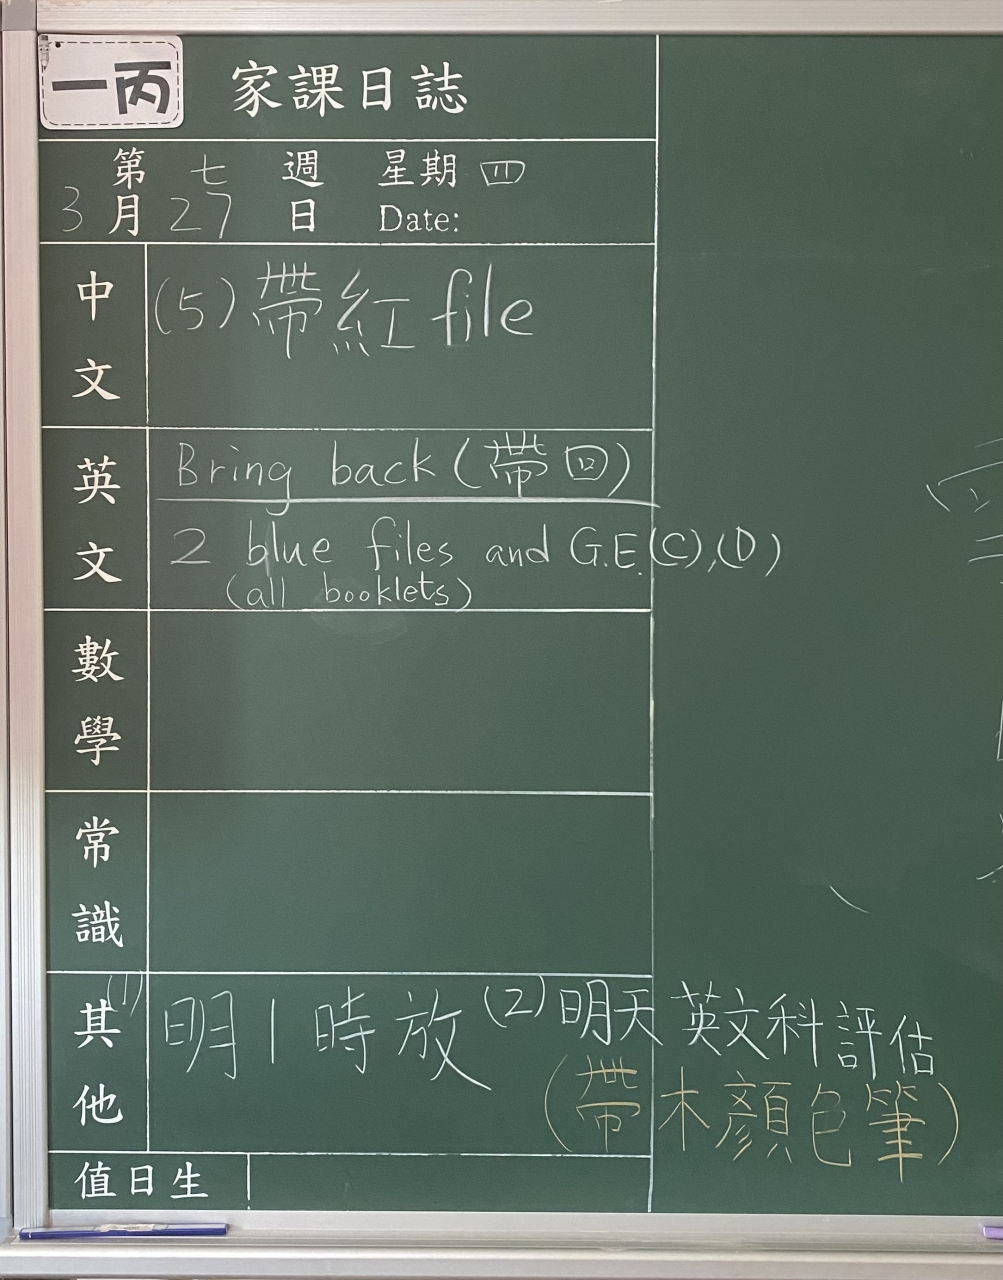 一丙 家課日誌
第 七 週 星期 四
3 月 27 日 Date:
中文 (5) 帶紅 file
英文 Bring back (帶回)
2 blue files and G.E.(C),(D)
(all booklets)
數學
常識
其他 (1) 明1時放 (2) 明天英文科評估
(帶木顏色筆)
值日生